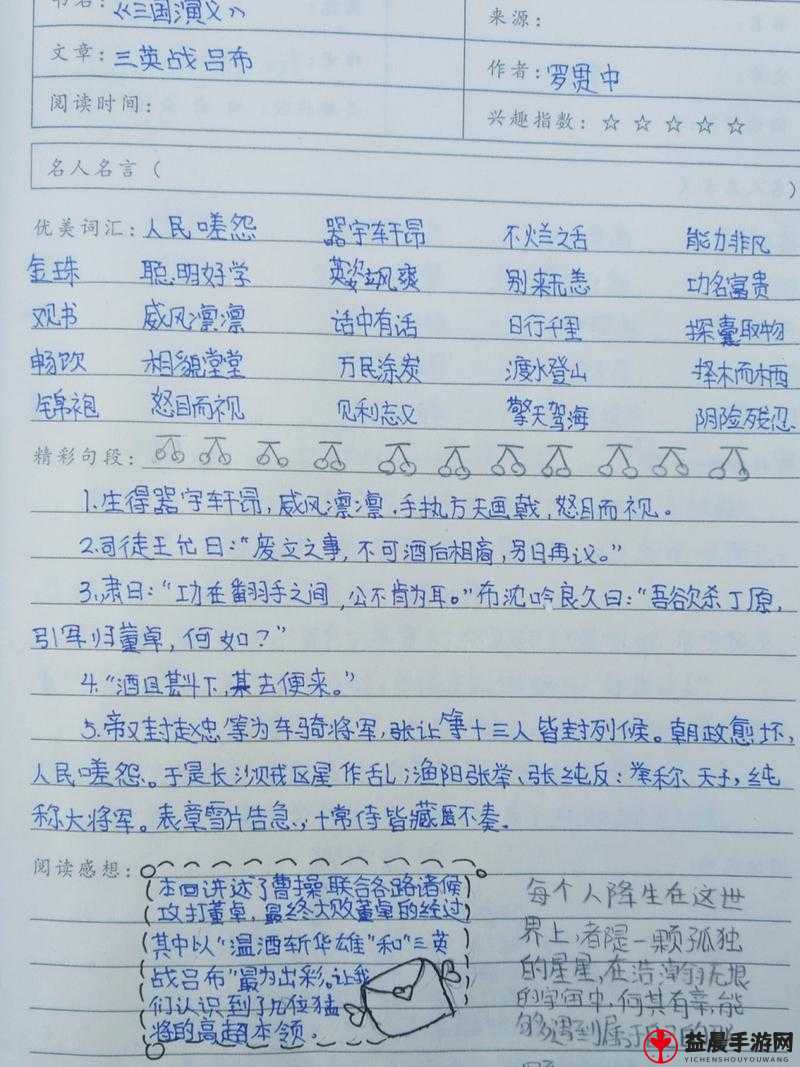 书名:《三国演义》 来源:
文章: 三英战吕布 作者: 罗贯中
阅读时间: 兴趣指数: ☆ ☆ ☆ ☆ ☆
名人名言 ( )
优美词汇: 人民嗟怨 器宇轩昂 不烂之舌 能力非凡
金珠 聪明好学 英姿飒爽 别来无恙 功名富贵
观书 威风凛凛 话中有话 日行千里 探囊取物
畅饮 相貌堂堂 万民涂炭 渡水登山 择木而栖
锦袍 怒目而视 见利忘义 擎天驾海 阴险残忍
精彩句段:
1.生得器宇轩昂,威风凛凛.手执方天画戟,怒目而视。
2.司徒王允曰:“废立之事,不可酒后相商,另日再议。”
3.肃曰:“功在翻羽手之间,公不肯为耳。”布沈吟良久曰:“吾欲杀丁原,
引军归董卓,何如?”
4.“酒且斟下,某去便来。”
5.帝又封赵忠等为车骑将军,张让等十三人皆封列候。朝政愈坏,
人民嗟怨。于是长沙贼区星作乱;渔阳张举、张纯反:举称天子,纯
称大将军。表章雪片告急,十常侍皆藏匿不奏.
阅读感想:
本回讲述了曹操联合各路诸候
攻打董卓,最终大败董卓的经过
其中以“温酒斩华雄”和“三英
战吕布”最为出彩。让我
们认识到了几位猛
将的高超本领.
每个人降生在这世
界上,都是一颗孤独
的星星,在浩瀚无垠
的宇宙中,何其有幸,能
够遇到属于
益晨手游网
YICHENSHOUYOUWANG